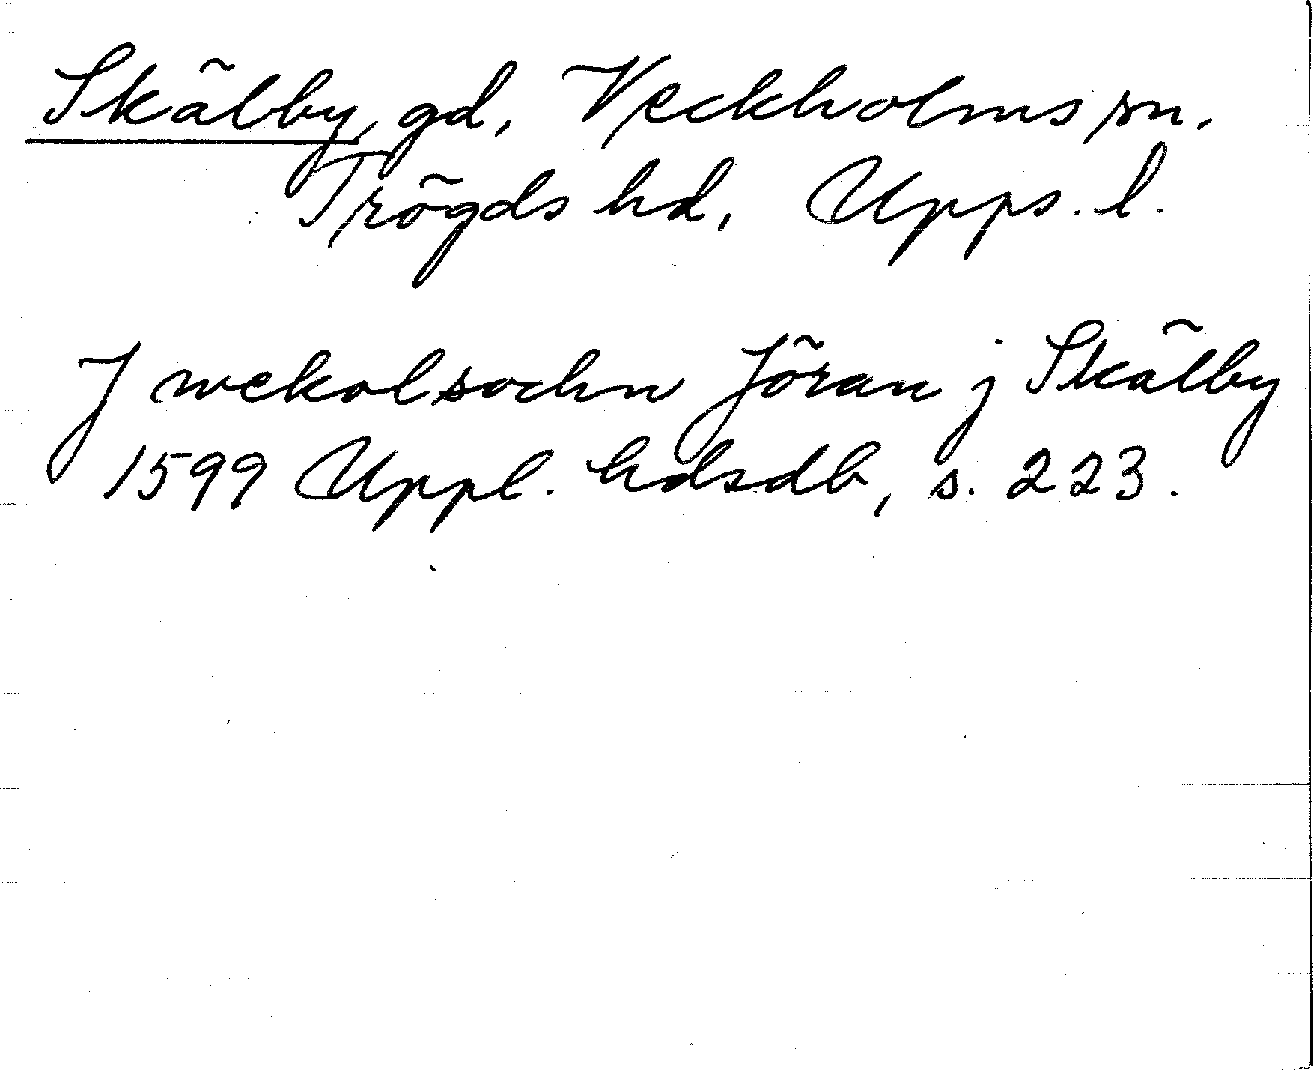 Skälby, gd, Veckholms sn.
Trögds hd, Upps. l.
J wekolsochn Jöran j Skälby
1599 Uppl. hdsdb, s. 223.